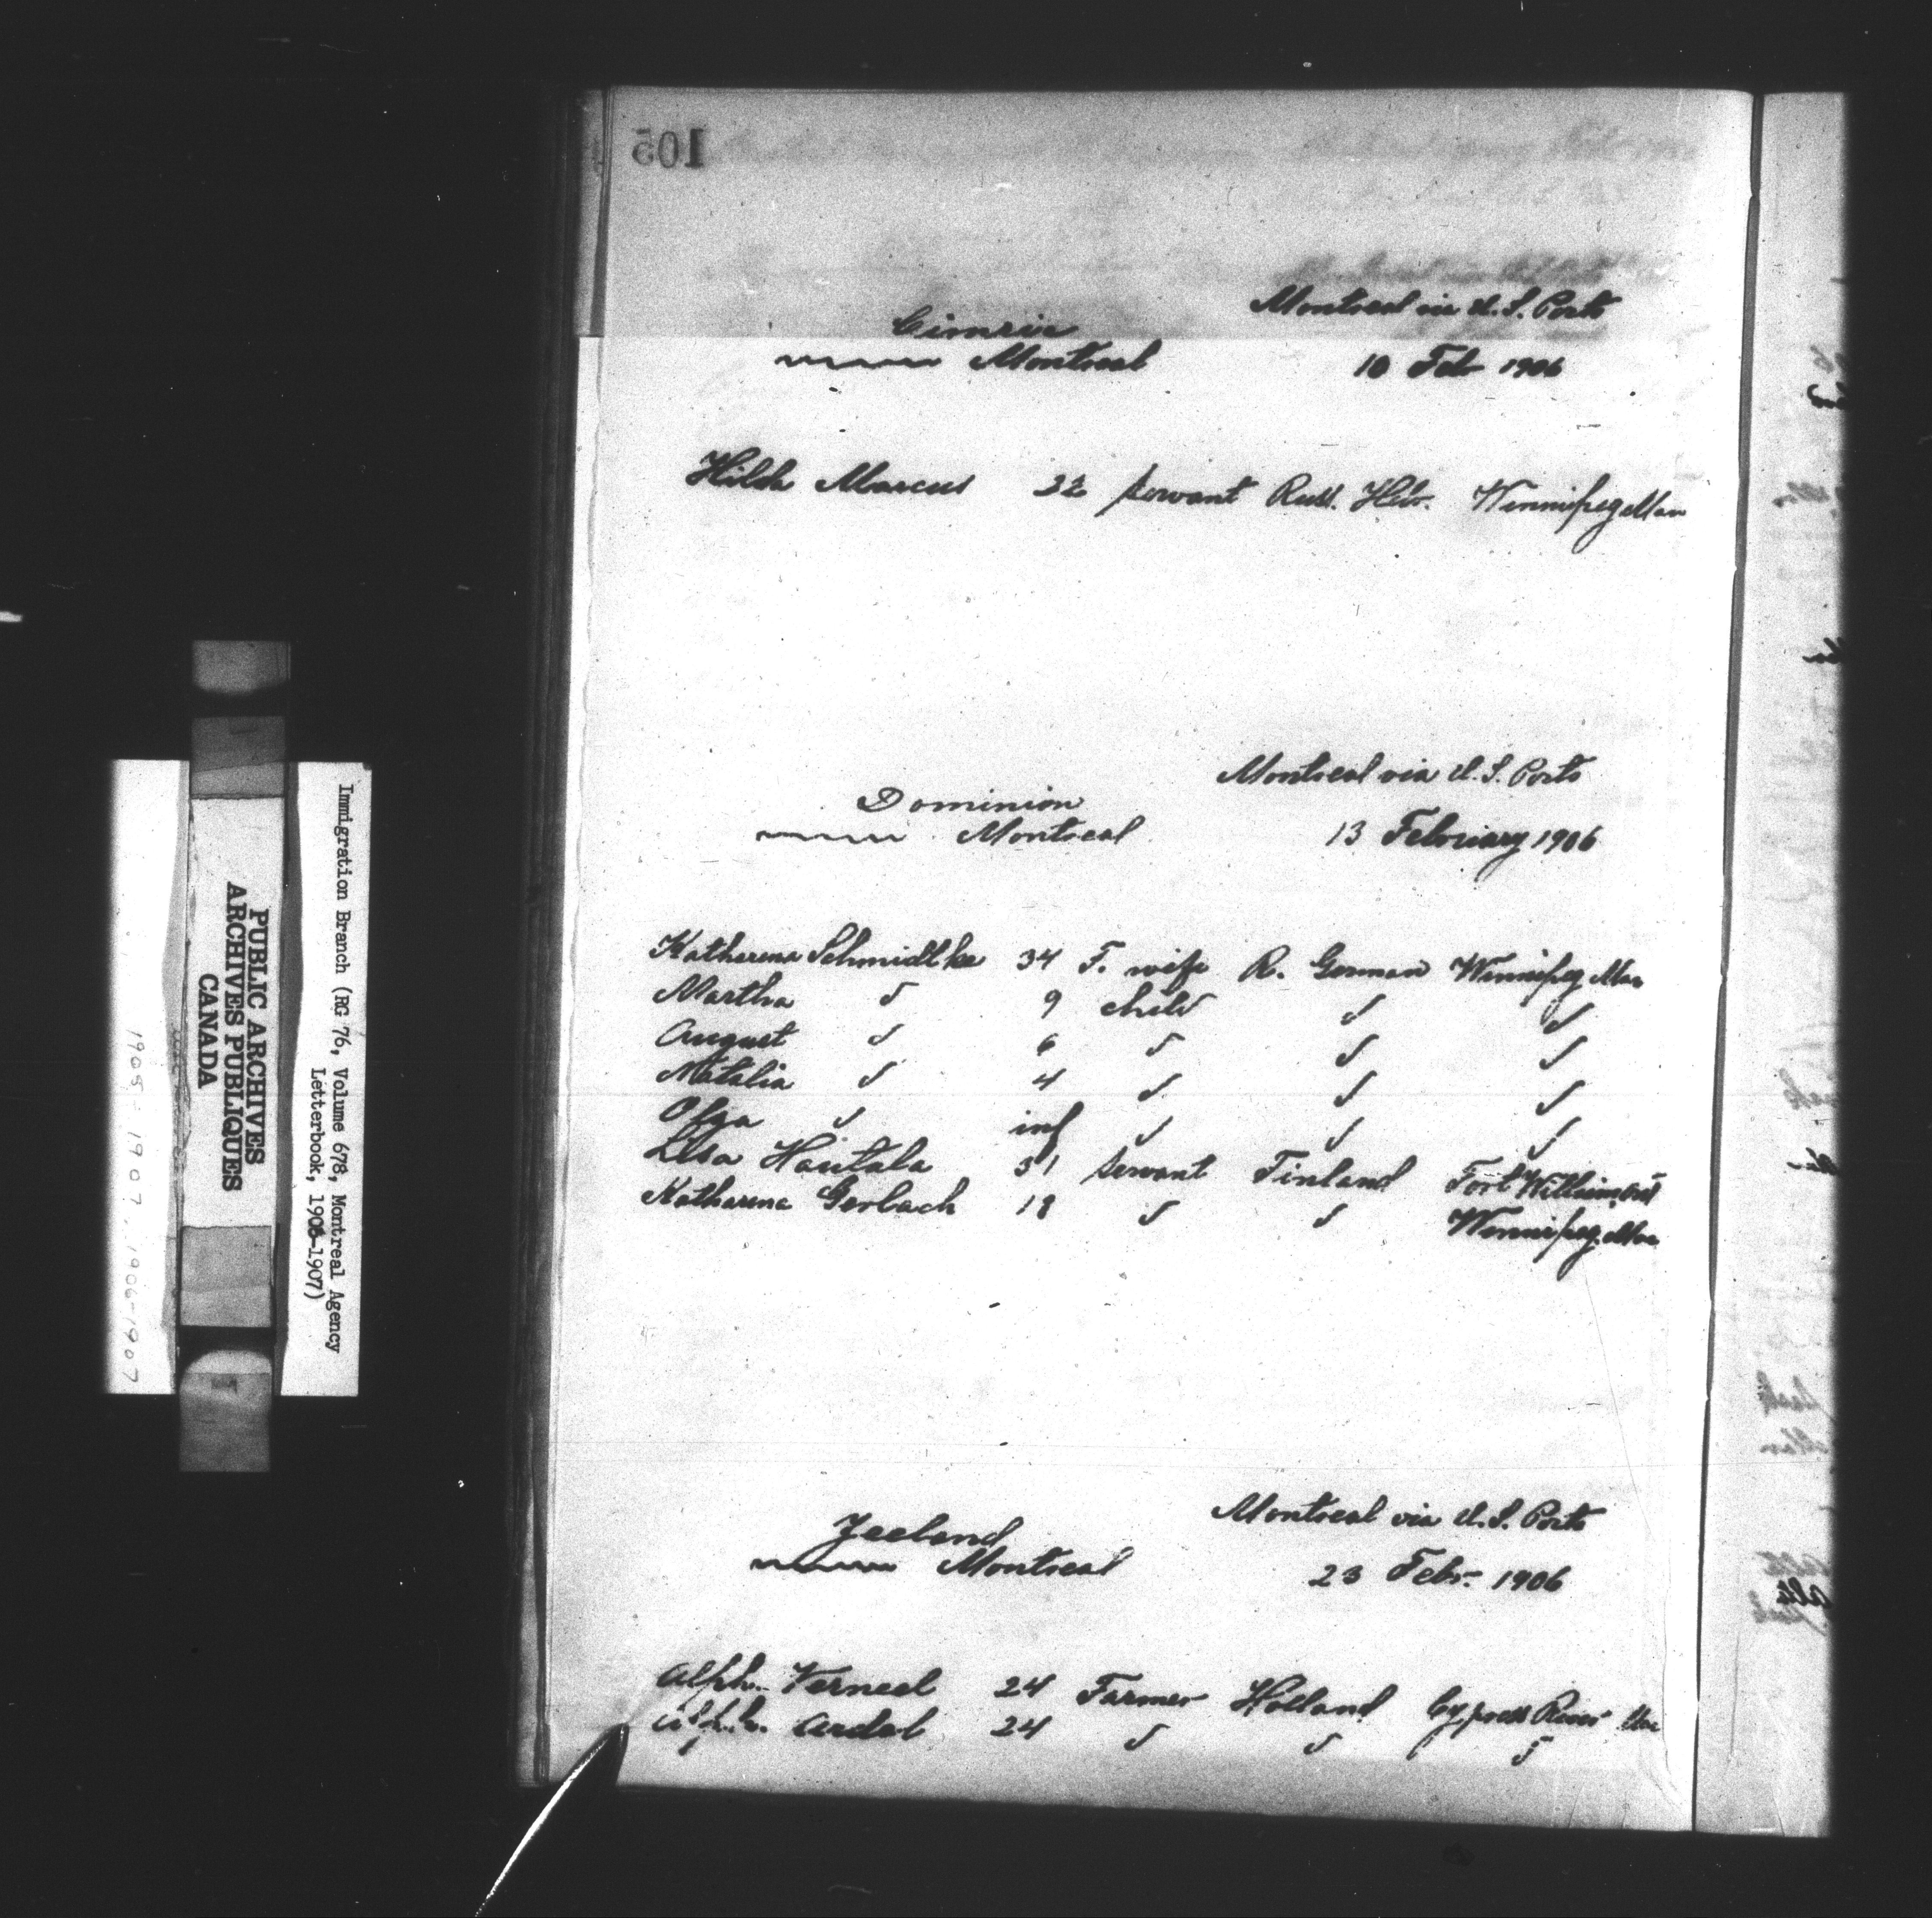 105
Montreal via U.S. Ports
Cimria
Montreal 10 Feb 1906
Hilda Marcus 22 servant Russ. Hebr. Winnipeg Man
Montreal via U.S. Ports
Dominion
Montreal 13 February 1906
Katherena Schmidtke 34 F. wife R. German Winnipeg Man
Martha " 9 child " "
August " 6 " " "
Natalia " 4 " " "
Olga " inf " " "
Lisa Hautala 31 servant Finland Fort William Ont
Katharena Gerlach 18 " " Winnipeg. Man
Montreal via U.S. Ports
Zeeland
Montreal 23 Febr. 1906
Alph. Verneel 24 Farmer Holland Cypress River Man
Alph. Ardel 24 " " "
Immigration Branch (RG 76, Volume 678, Montreal Agency
Letterbook, 1905-1907)
PUBLIC ARCHIVES
ARCHIVES PUBLIQUES
CANADA
1905-1907, 1906-1907